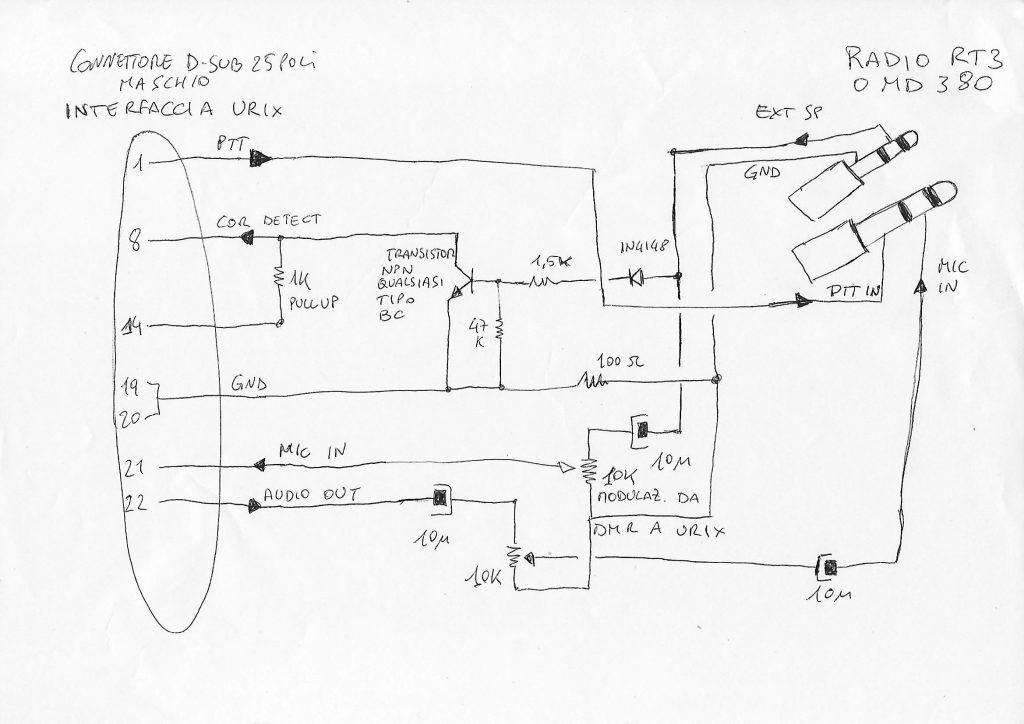 CONNETTORE D-SUB 25 POLI
MASCHIO
INTERFACCIA URIX
RADIO RT3
O MD 380
EXT SP
GND
1
PTT
8
COR DETECT
1K
PULLUP
TRANSISTOR
NPN
QUALSIASI
TIPO
BC
1,5K
1N4148
MIC
IN
PTT IN
14
47
K
100 Ω
19
20
GND
21
MIC IN
10µ
10K
MODULAZ. DA
DMR A URIX
22
AUDIO OUT
10µ
10K
10µ